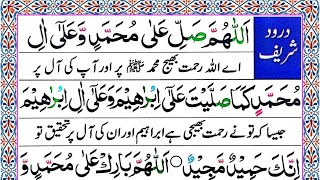 درود شریف
اَللّٰهُمَّ صَلِّ عَلٰی مُحَمَّدٍ وَّعَلٰۤی اٰلِ
اے اللہ رحمت بھیج محمد ﷺ پر اور آپ کی آل پر
مُحَمَّدٍ كَمَا صَلَّیْتَ عَلٰۤی اِبْرٰهِیْمَ وَعَلٰۤی اٰلِ اِبْرٰهِیْمَ
جیسا کہ تو نے رحمت بھیجی ہے ابراہیم اور ان کی آل پر تحقیق تو
اِنَّكَ حَمِیْدٌ مَّجِیْدٌ ○ اَللّٰهُمَّ بَارِكْ عَلٰی مُحَمَّدٍ وَّ